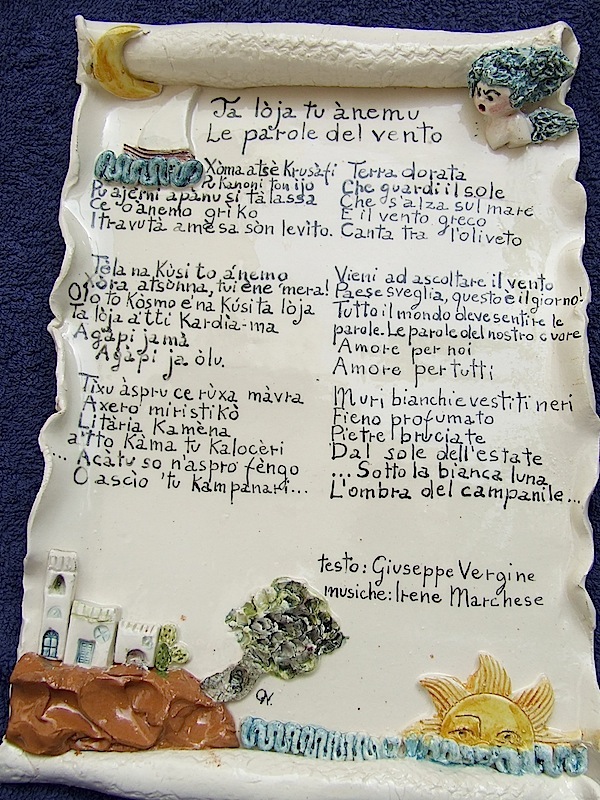 Ta lòja tu ànemu
Le parole del vento
Xòma atsè Krusàfi
Pu Kanoni ton iju
Pu ajerni apànu si tàlassa
Ce o ànemo griko
Itravutà amesa son levìto.
Tèla na Kùsi to ànemo
Òra atsùnna, tui ène 'mera!
Olo to Kòsmo e'na Kùsita lòja
Ta lòja a'tti Kardìa-ma
Agàpi ja mà
Agàpi ja òlu.
Tixu àspru ce rùxa màvra
Axero mìristikò
Litària Kamèna
a'tto Kàma tu Kalocèri
... Acàtu so n'aspro fèngo
O ascìo 'tu Kampanari...
Terra dorata
Che guardi il sole
Che s'alza sul mare
E il vento greco
Canta tra l'oliveto
Vieni ad ascoltare il vento
Paese sveglia, questo è il giorno!
Tutto il mondo deve sentire le
parole. Le parole del nostro cuore
Amore per noi
Amore per tutti
Muri bianchi e vestiti neri
Fieno profumato
Pietre bruciate
Dal sole dell'estate
... Sotto la bianca luna
L'ombra del campanile...
testo: Giuseppe Vergine
musiche: Irene Marchese